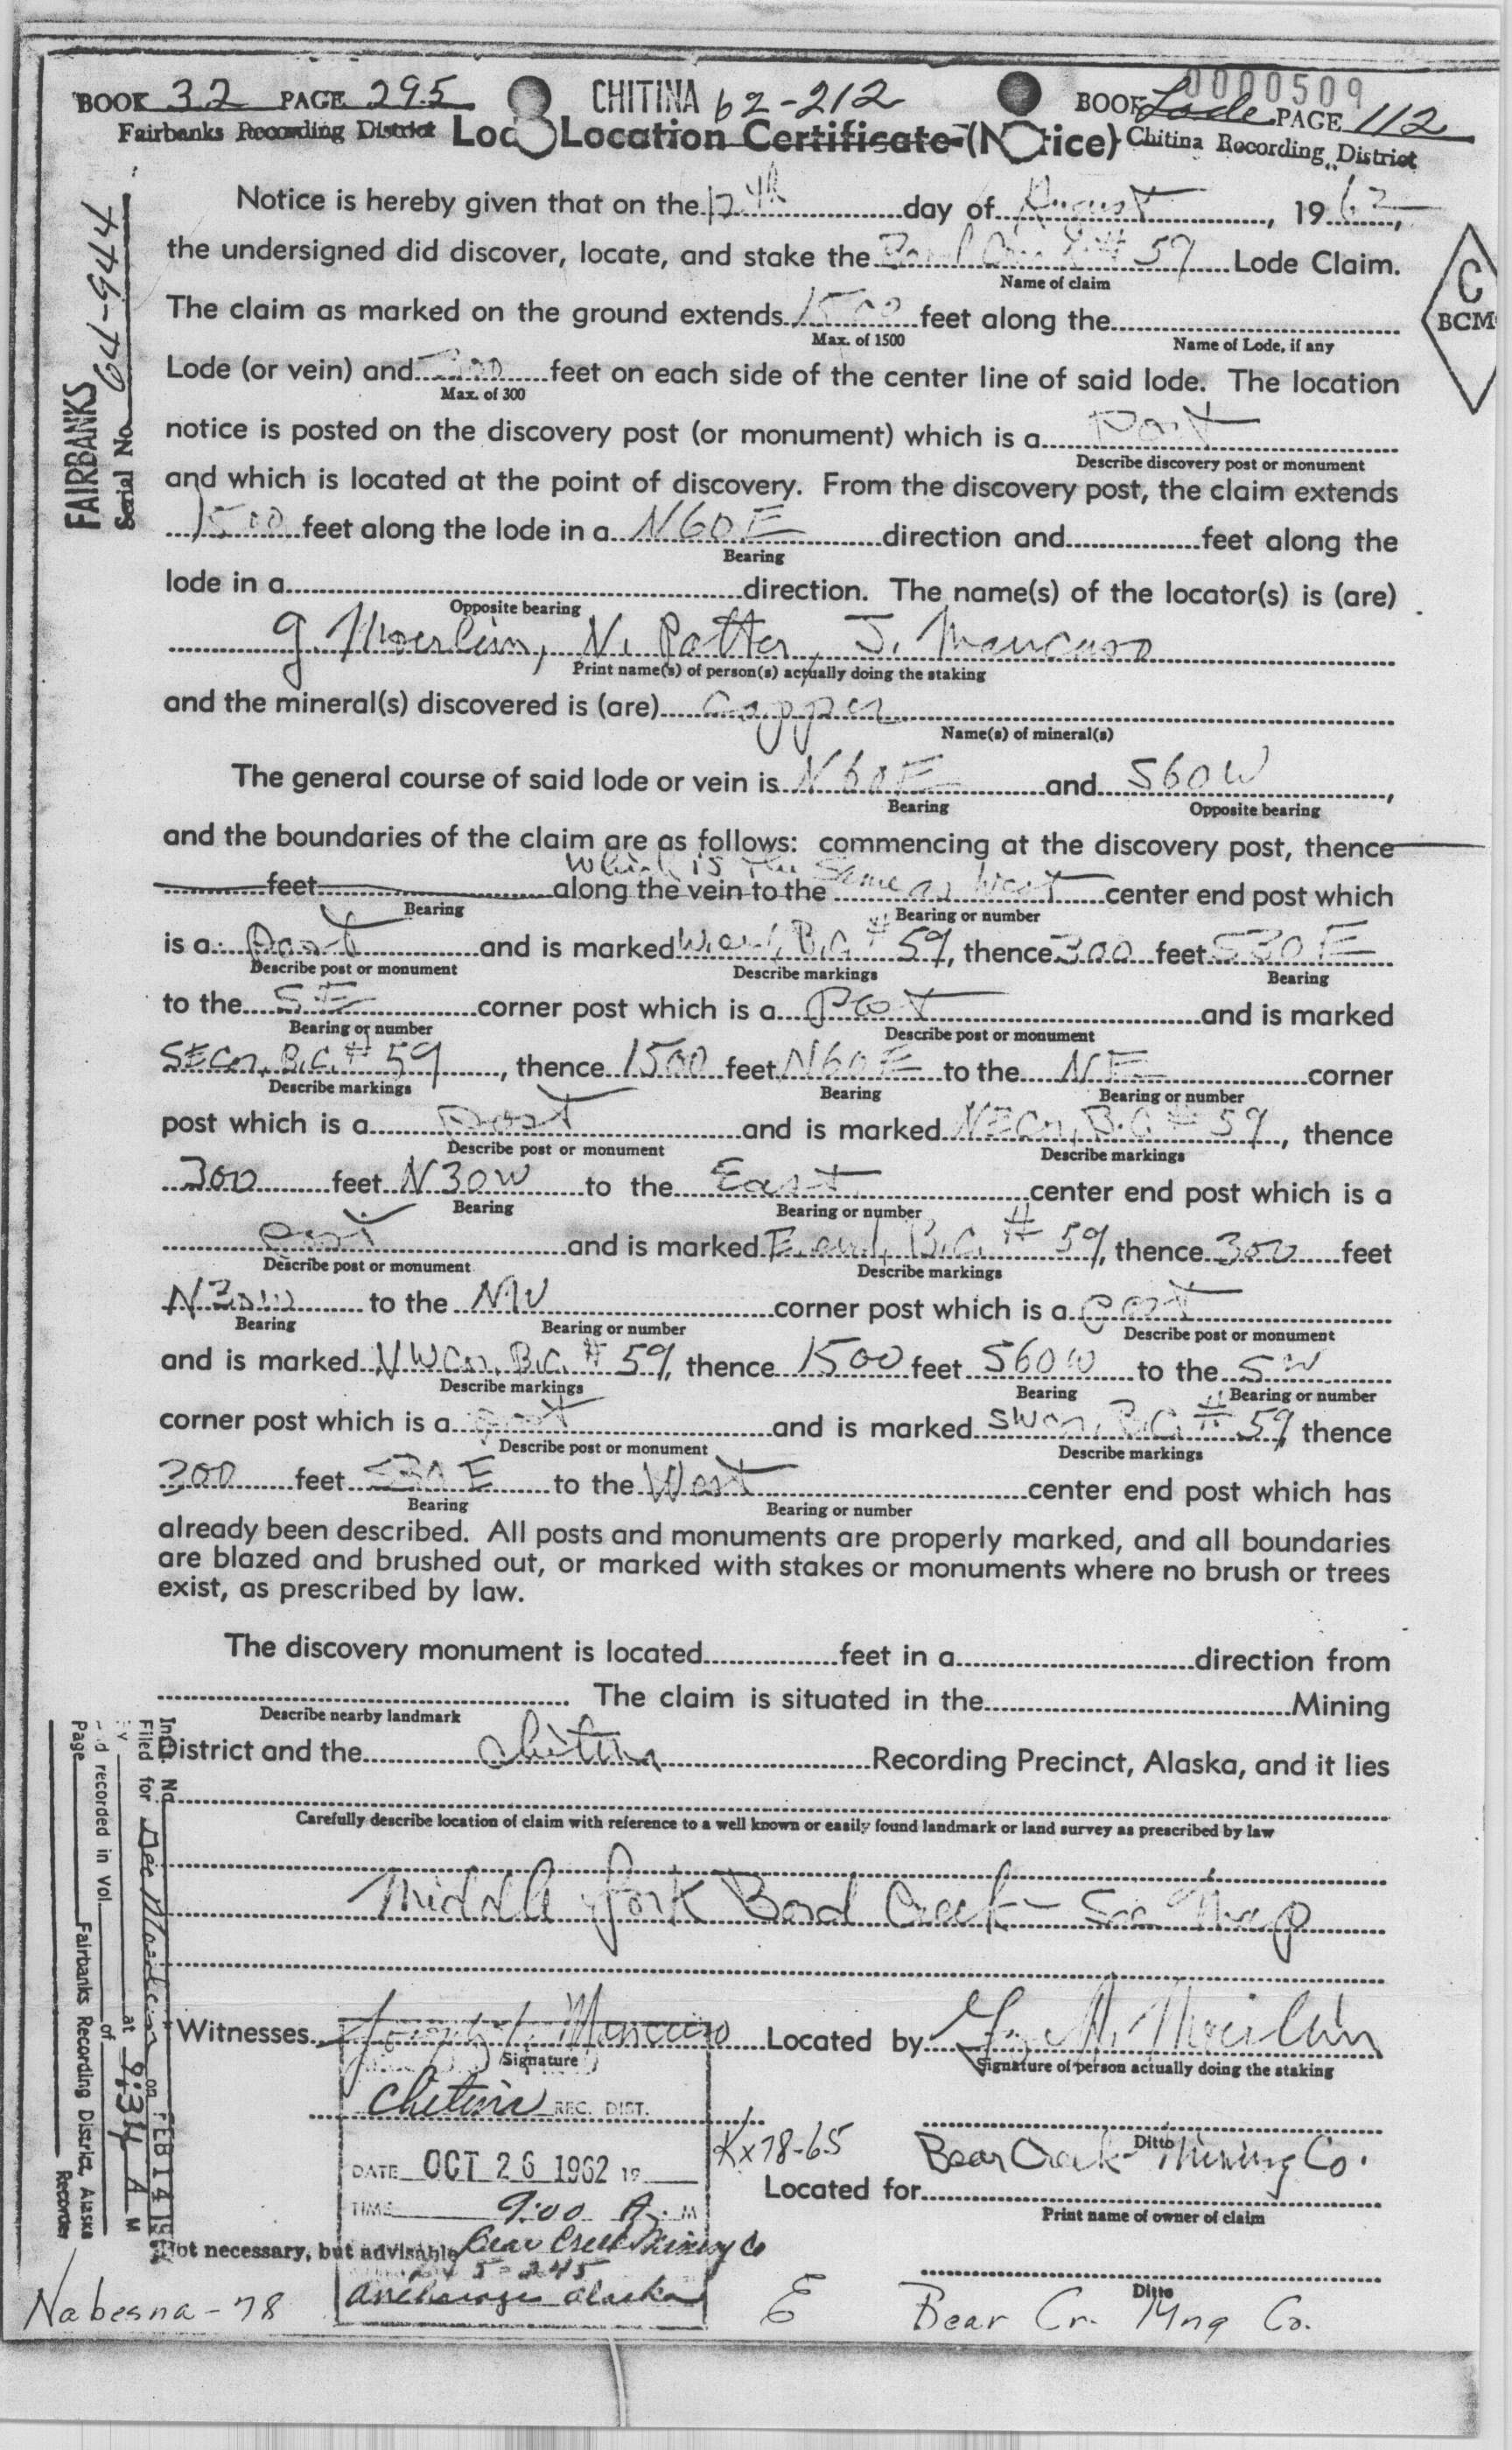 0000509
BOOK 32 PAGE 295 CHITINA 62-212 BOOK Lode PAGE 112
Fairbanks Recording District Location Certificate (Notice) Chitina Recording District
Notice is hereby given that on the 12th day of August, 1962,
the undersigned did discover, locate, and stake the # 59 Lode Claim.
Name of claim
The claim as marked on the ground extends 1500 feet along the
Max. of 1500 Name of Lode, if any
Lode (or vein) and 300 feet on each side of the center line of said lode. The location
Max. of 300
notice is posted on the discovery post (or monument) which is a Post
Describe discovery post or monument
and which is located at the point of discovery. From the discovery post, the claim extends
1500 feet along the lode in a N60E direction and feet along the
Bearing
lode in a direction. The name(s) of the locator(s) is (are)
Opposite bearing
G. Moerlein, N. Potter, J. Mancuso
Print name(s) of person(s) actually doing the staking
and the mineral(s) discovered is (are) Copper
Name(s) of mineral(s)
The general course of said lode or vein is N60E and S60W,
Bearing Opposite bearing
and the boundaries of the claim are as follows: commencing at the discovery post, thence
which is the
feet along the vein to the same as West center end post which
Bearing Bearing or number
is a Post and is marked W. end, B.C. # 59, thence 300 feet S30E
Describe post or monument Describe markings Bearing
to the SE corner post which is a Post and is marked
Bearing or number Describe post or monument
SE Cn, B.C. # 59, thence 1500 feet N60E to the NE corner
Describe markings Bearing Bearing or number
post which is a Post and is marked NE Cn, B.C. # 59, thence
Describe post or monument Describe markings
300 feet N30W to the East center end post which is a
Bearing Bearing or number
post and is marked E. end, B.C. # 59, thence 300 feet
Describe post or monument Describe markings
N30W to the NW corner post which is a post
Bearing Bearing or number Describe post or monument
and is marked NW Cn, B.C. # 59, thence 1500 feet S60W to the SW
Describe markings Bearing Bearing or number
corner post which is a post and is marked SW cn, B.C. # 59 thence
Describe post or monument Describe markings
300 feet S30E to the West center end post which has
Bearing Bearing or number
already been described. All posts and monuments are properly marked, and all boundaries
are blazed and brushed out, or marked with stakes or monuments where no brush or trees
exist, as prescribed by law.
The discovery monument is located feet in a direction from
The claim is situated in the Mining
Describe nearby landmark
District and the Chitina Recording Precinct, Alaska, and it lies
Carefully describe location of claim with reference to a well known or easily found landmark or land survey as prescribed by law
Middle fork Bond Creek - See Map
Witnesses Joseph J. Mancuso Located by Geo. A. Moerlein
Signature Signature of person actually doing the staking
Chitina REC. DIST.
Kx78-65 Bear Creek Mining Co.
Ditto
DATE OCT 26 1962 19
Located for
TIME 9:00 A. M Print name of owner of claim
Not necessary, but advisable Bear Creek Mining Co
5-245
Anchorage Alaska
Ditto
Nabesna-78 E Bear Cr. Mng Co.
FAIRBANKS
Serial No. 64-944
C
BCM
Inst. No.
Filed for on FEB 14 19
at 9:34 A M
recorded in Vol. of
Page Fairbanks Recording District, Alaska
Recorder